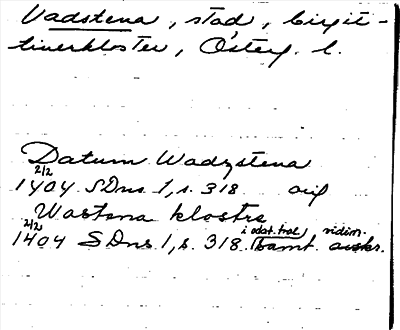 Vadstena, stad, birgit-
tinerkloster, Österg. l.
Datum Wadzstena
2/2
1404 SDns 1, s. 318 orig
Wastena klostre
2/2 i odat. trol. vidim.
1404 SDns 1, s. 318. samt. avskr.